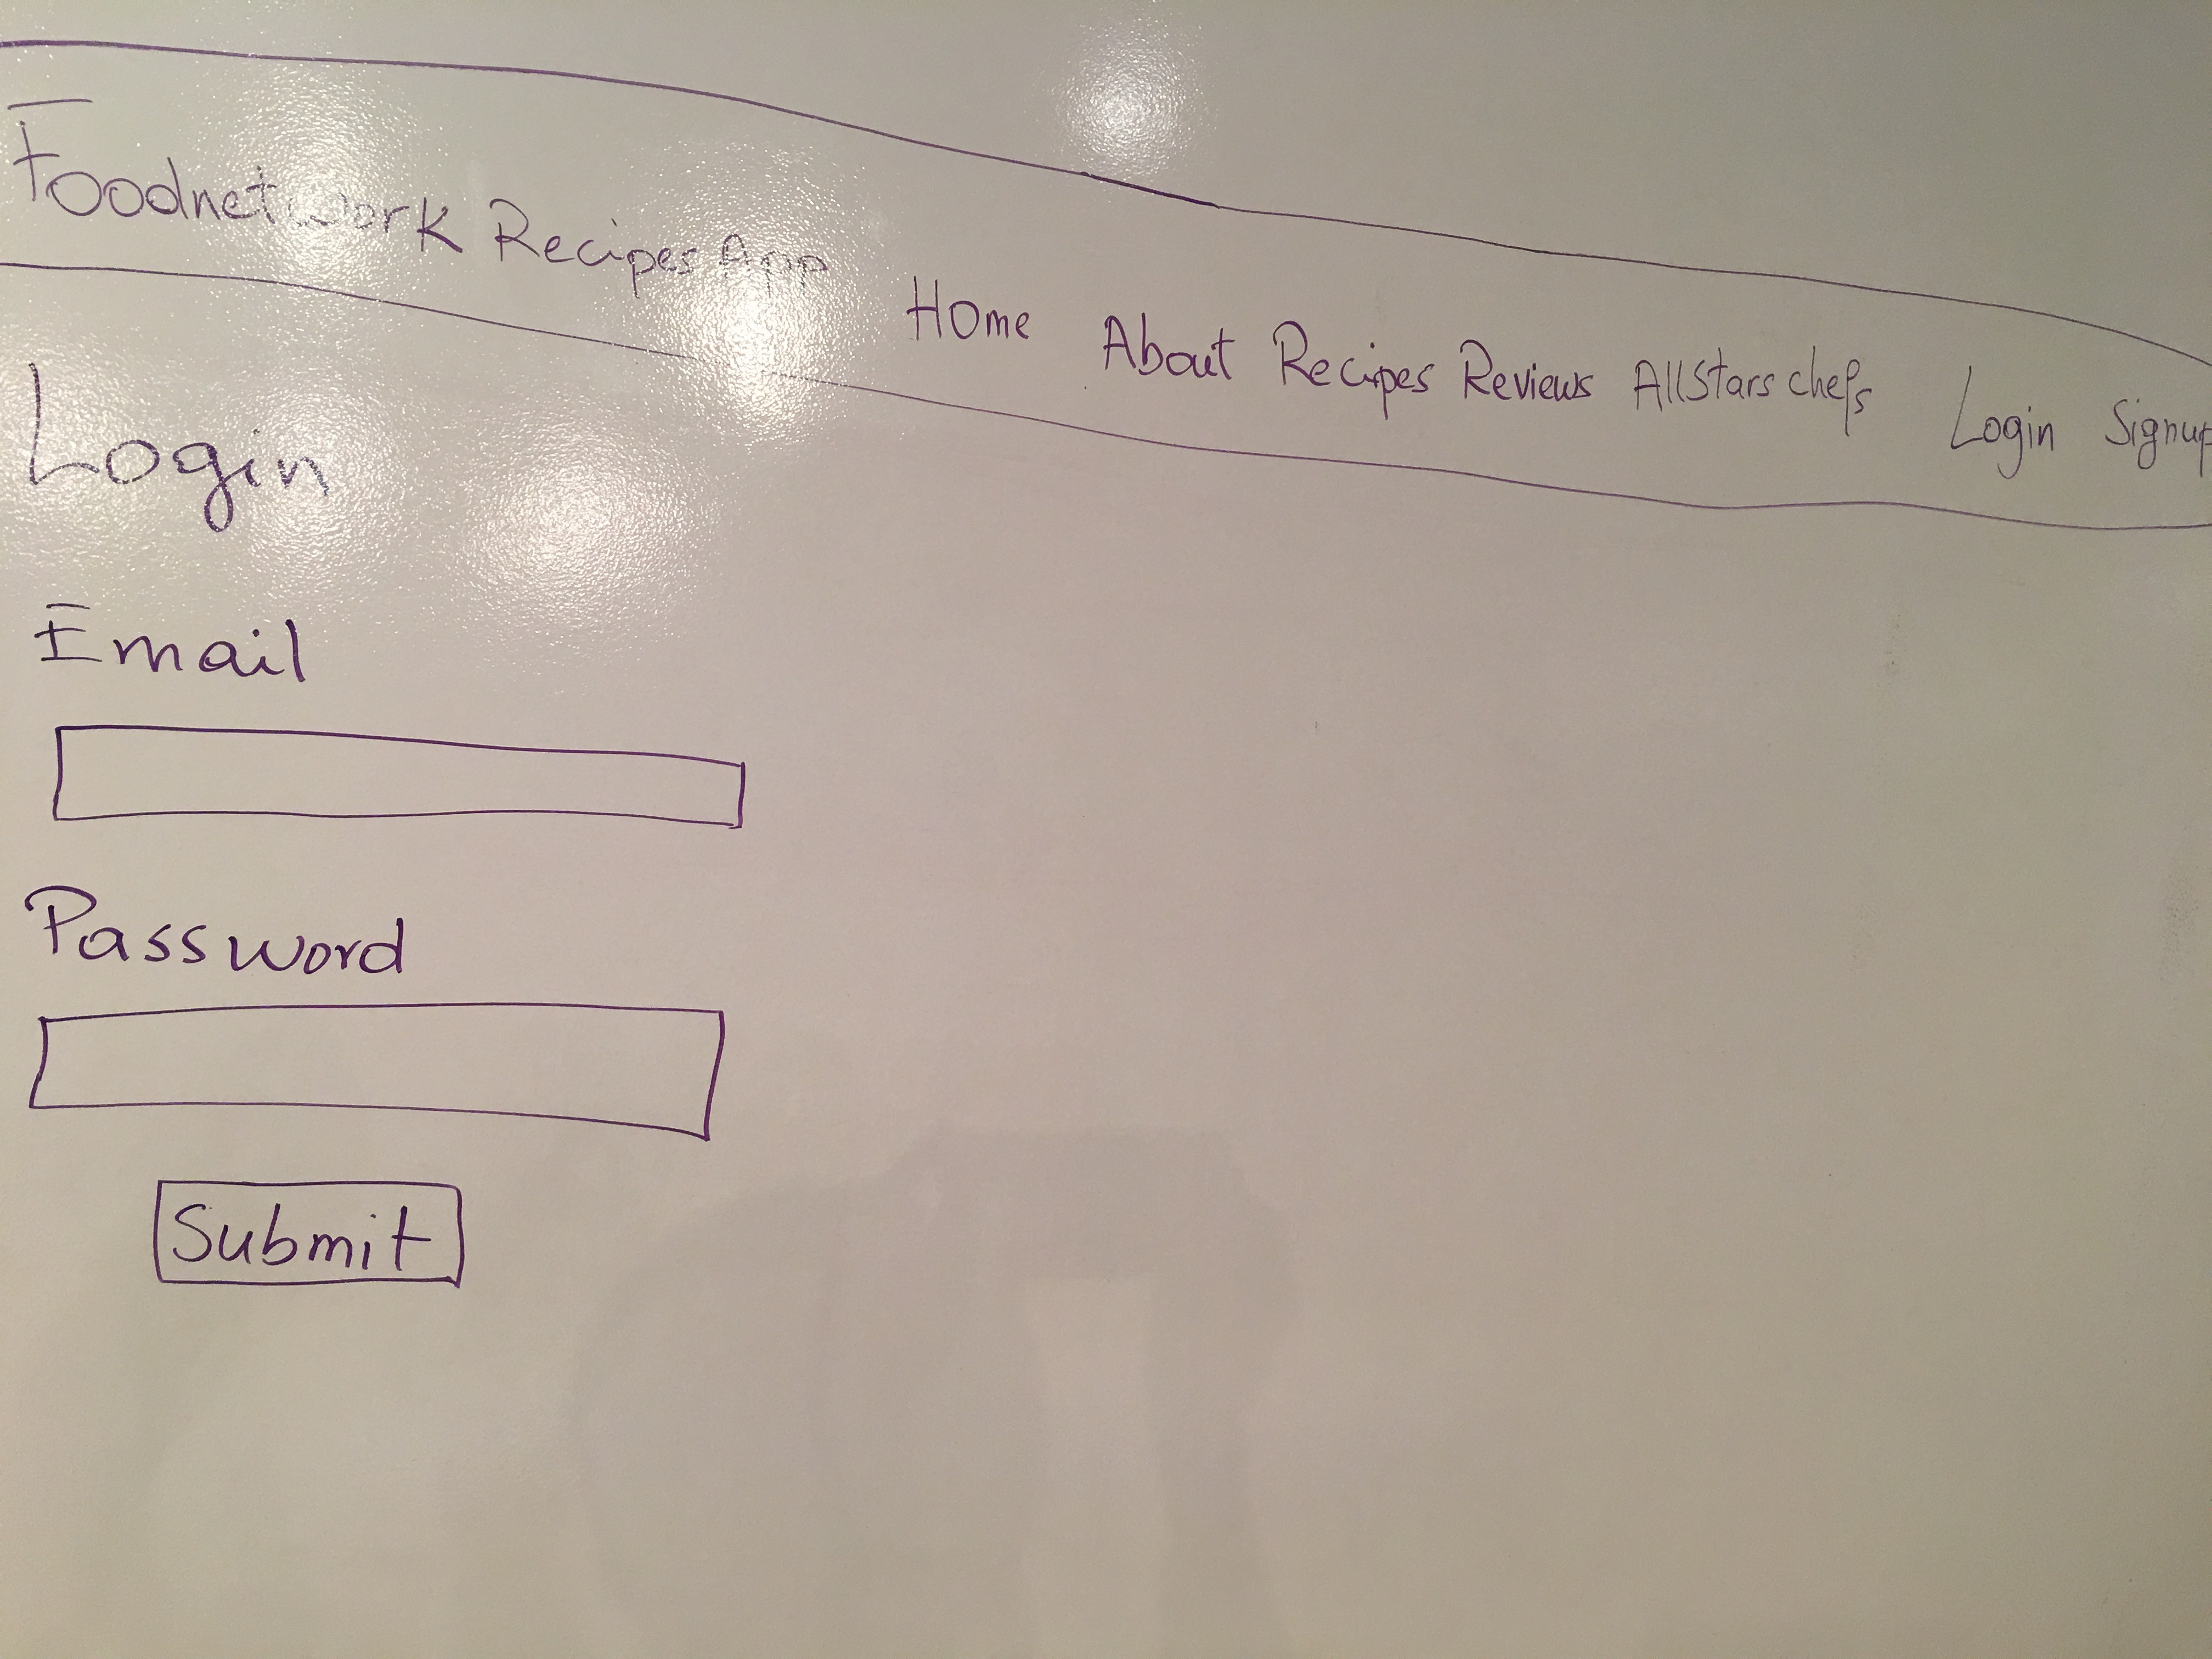 Foodnetwork Recipes App Home About Recipes Reviews AllStars chefs Login Signup
Login
Email
Password
Submit